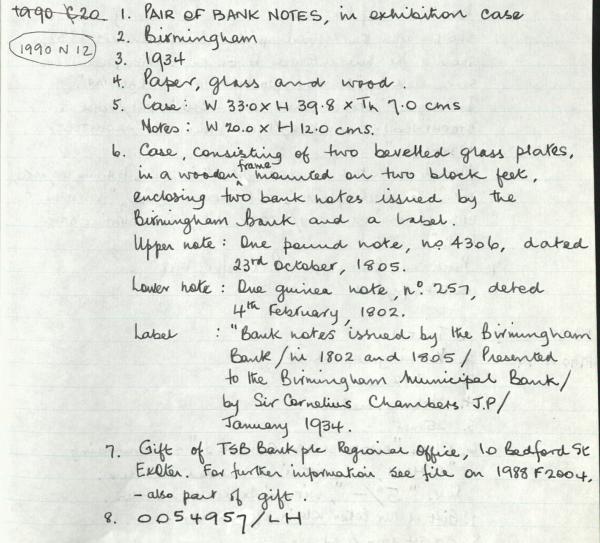 1990 S20 1. PAIR OF BANK NOTES, in exhibition case
1990 N 12
2. Birmingham
3. 1934
4. Paper, glass and wood.
5. Case: W 33.0 x H 39.8 x Th 7.0 cms
Notes: W 20.0 x H 12.0 cms.
6. Case, consisting of two bevelled glass plates,
in a wooden frame mounted on two block feet,
enclosing two bank notes issued by the
Birmingham Bank and a label.
Upper note: One pound note, no 4306, dated
23rd October, 1805.
Lower note: One guinea note, no. 257, dated
4th February, 1802.
Label : "Bank notes issued by the Birmingham
Bank/in 1802 and 1805/Presented
to the Birmingham Municipal Bank/
by Sir Cornelius Chambers J.P/
January 1934.
7. Gift of TSB Bank plc Regional Office, 10 Bedford St
Exeter. For further information see file on 1988 F2004,
- also part of gift.
8. 0054957/LH